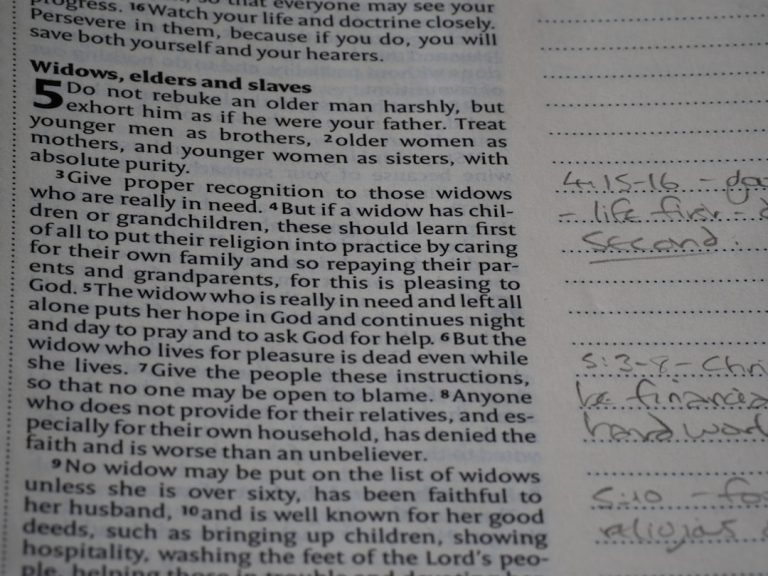 progress. 16 Watch your life and doctrine closely.
Persevere in them, because if you do, you will
save both yourself and your hearers.
Widows, elders and slaves
5 Do not rebuke an older man harshly, but
exhort him as if he were your father. Treat
younger men as brothers, 2 older women as
mothers, and younger women as sisters, with
absolute purity.
3 Give proper recognition to those widows
who are really in need. 4 But if a widow has chil-
dren or grandchildren, these should learn first
of all to put their religion into practice by caring
for their own family and so repaying their par-
ents and grandparents, for this is pleasing to
God. 5 The widow who is really in need and left all
alone puts her hope in God and continues night
and day to pray and to ask God for help. 6 But the
widow who lives for pleasure is dead even while
she lives. 7 Give the people these instructions,
so that no one may be open to blame. 8 Anyone
who does not provide for their relatives, and es-
pecially for their own household, has denied the
faith and is worse than an unbeliever.
9 No widow may be put on the list of widows
unless she is over sixty, has been faithful to
her husband, 10 and is well known for her good
deeds, such as bringing up children, showing
hospitality, washing the feet of the Lord's peo-
4:15-16 -
- life first -
second.
5:3-8 - Chri
be financia
hard work
5:10 -